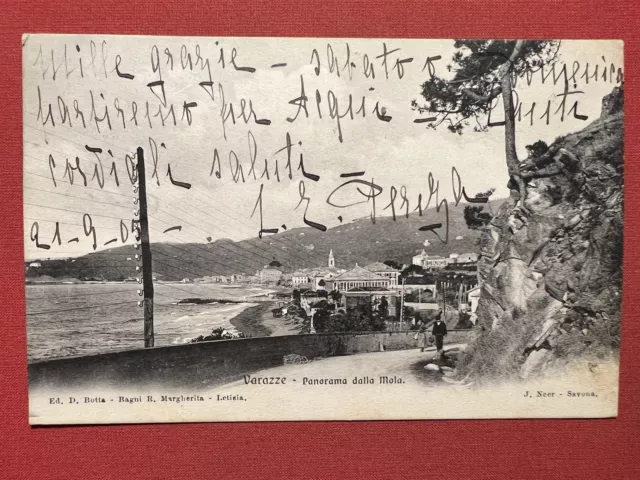 Mille grazie – sabato o domenica
partiremo per Acqui – Tanti
cordiali saluti
21-9-05
Varazze - Panorama dalla Mola.
Ed. D. Botta - Bagni R. Margherita - Letizia.
J. Neer - Savona.